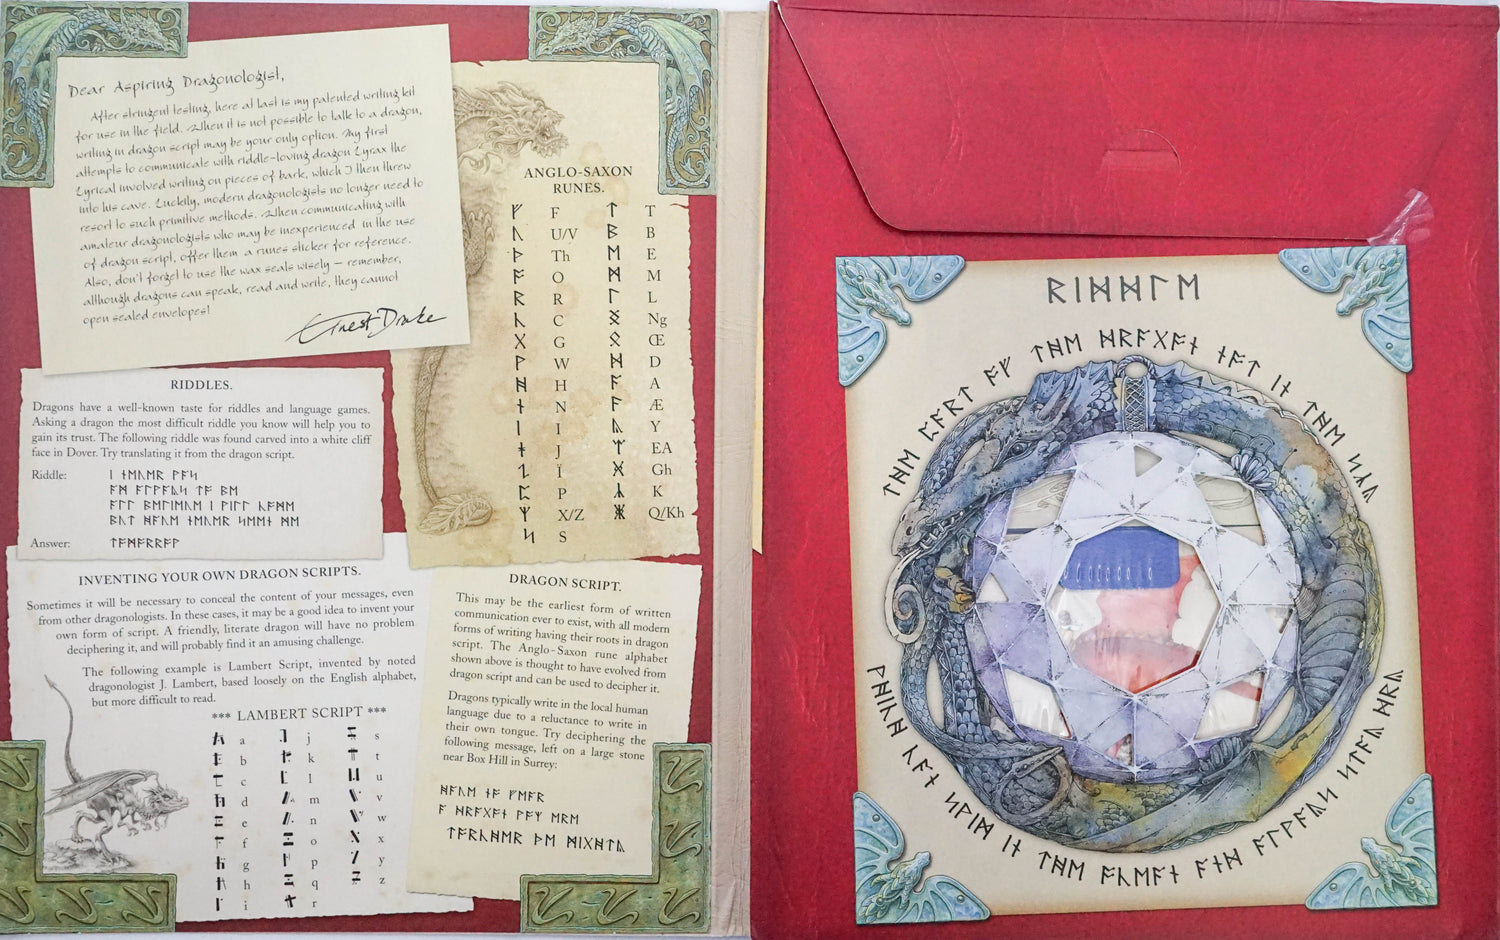 Dear Aspiring Dragonologist,
After stringent testing, here at last is my patented writing kit
for use in the field. When it is not possible to talk to a dragon,
writing in dragon script may be your only option. My first
attempts to communicate with riddle-loving dragon Lyrax the
Lyrical involved writing on pieces of bark, which I then threw
into his cave. Luckily, modern dragonologists no longer need to
resort to such primitive methods. When communicating with
amateur dragonologists who may be inexperienced in the use
of dragon script, offer them a runes sticker for reference.
Also, don't forget to use the wax seals wisely – remember,
although dragons can speak, read and write, they cannot
open sealed envelopes!
Ernest Drake
ANGLO-SAXON
RUNES.
ᚠ F ᛏ T
ᚢ U/V ᛒ B
ᚦ Th ᛖ E
ᚩ O ᛗ M
ᚱ R ᛚ L
ᚳ C ᛝ Ng
ᚷ G ᛟ Œ
ᚹ W ᛞ D
ᚻ H ᚪ A
ᚾ N ᚫ Æ
ᛁ I ᚣ Y
ᛄ J ᛠ EA
ᛇ Ï ᚸ Gh
ᛈ P ᛣ K
ᛉ X/Z ᛤ Q/Kh
ᛋ S
RIDDLES.
Dragons have a well-known taste for riddles and language games.
Asking a dragon the most difficult riddle you know will help you to
gain its trust. The following riddle was found carved into a white cliff
face in Dover. Try translating it from the dragon script.
Riddle: ᛁ ᚾᛖᚢᛖᚱ ᚹᚪᛋ
ᚪᛗ ᚪᛚᚹᚪᚣᛋ ᛏᚩ ᛒᛖ
ᚪᛚᛚ ᛒᛖᛚᛁᛖᚢᛖ ᛁ ᚹᛁᛚᛚ ᚳᚩᛗᛖ
ᛒᚢᛏ ᚻᚪᚢᛖ ᚾᛖᚢᛖᚱ ᛋᛖᛖᚾ ᛗᛖ
Answer: ᛏᚩᛗᚩᚱᚱᚩᚹ
INVENTING YOUR OWN DRAGON SCRIPTS.
Sometimes it will be necessary to conceal the content of your messages, even
from other dragonologists. In these cases, it may be a good idea to invent your
own form of script. A friendly, literate dragon will have no problem
deciphering it, and will probably find it an amusing challenge.
The following example is Lambert Script, invented by noted
dragonologist J. Lambert, based loosely on the English alphabet,
but more difficult to read.
*** LAMBERT SCRIPT ***
a j s
b k t
c l u
d m v
e n w
f o x
g p y
h q z
i r
DRAGON SCRIPT.
This may be the earliest form of written
communication ever to exist, with all modern
forms of writing having their roots in dragon
script. The Anglo-Saxon rune alphabet
shown above is thought to have evolved from
dragon script and can be used to decipher it.
Dragons typically write in the local human
language due to a reluctance to write in
their own tongue. Try deciphering the
following message, left on a large stone
near Box Hill in Surrey:
ᚻᚪᚢᛖ ᚾᚩ ᚠᛖᚪᚱ
ᚪ ᛞᚱᚪᚷᚩᚾ ᚹᚪᛉ ᛖᚱᛖ
ᛏᚩᚱᚳᚻᛖᚱ ᚦᛖ ᛗᛁᚷᚻᛏᚣ
ᚱᛁᛞᛞᛚᛖ
ᛏᚻᛖ ᛈᚪᚱᛏ ᚩᚠ ᛏᚻᛖ ᛞᚱᚪᚷᚩᚾ ᚾᚩᛏ ᛁᚾ ᛏᚻᛖ ᛋᛣᚣ
ᚹᚻᛁᚳᚻ ᚳᚪᚾ ᛋᚹᛁᛗ ᛁᚾ ᛏᚻᛖ ᚩᚳᛖᚪᚾ ᚪᚾᛞ ᚪᛚᚹᚪᚣᛋ ᛋᛏᚪᚣ ᛞᚱᚣ